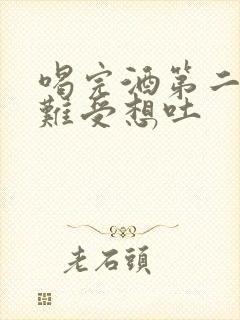 喝完酒第二
難受想吐
老石頭